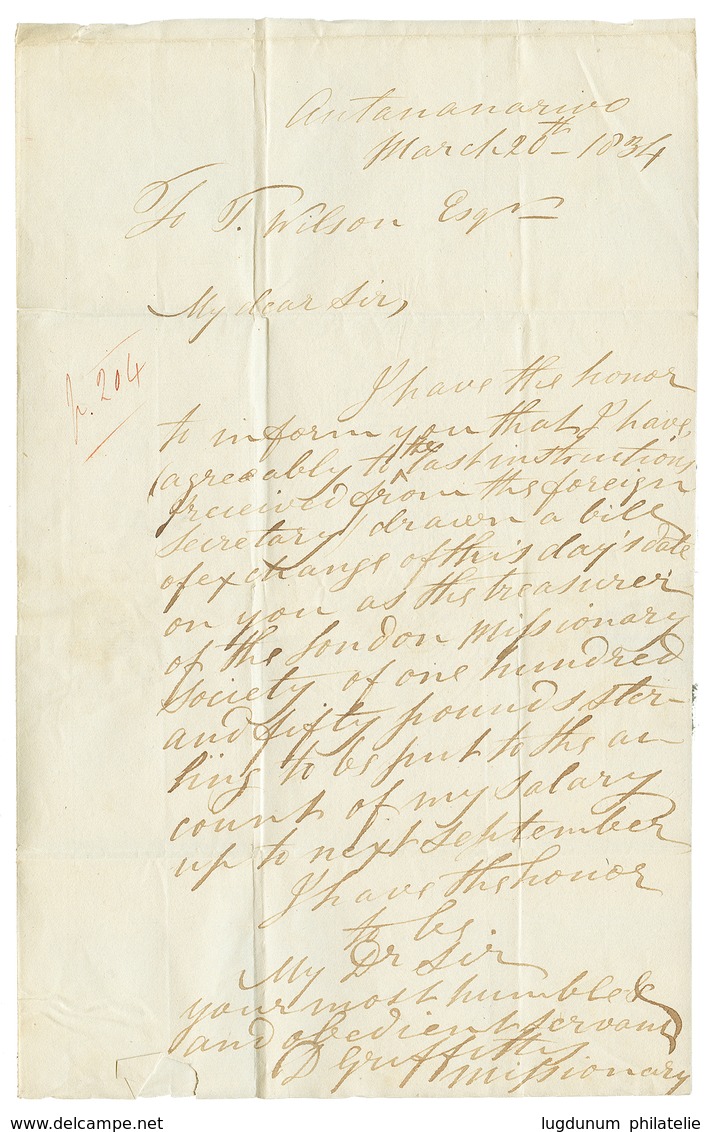 Antananarivo
March 20th - 1834
To T. Wilson Esqr
My dear Sir,
p. 204
I have the honor
to inform you that I have
(agreeably to the last instructions
received from the foreign
Secretary) drawn a bill
of exchange of this day's date
on you as the treasurer
of the London Missionary
Society of one hundred
and fifty pounds ster-
ling to be put to the ac
count of my salary
up to next September
I have the honor
to be
My Dr Sir
your most humble &
and obedient servant
D Griffiths
Missionary
www.delcampe.net
lugdunum philatelie